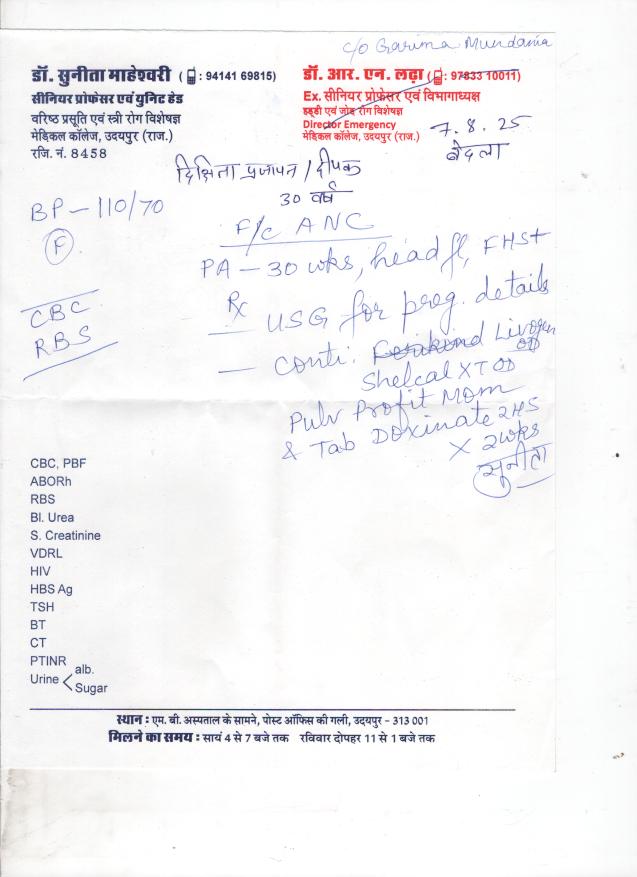 c/o Garima Mundania
डॉ. सुनीता माहेश्वरी ( : 94141 69815)
सीनियर प्रोफेसर एवं युनिट हेड
वरिष्ठ प्रसूति एवं स्त्री रोग विशेषज्ञ
मेडिकल कॉलेज, उदयपुर (राज.)
रजि. नं. 8458
डॉ. आर. एन. लढ़ा ( : 97833 10011)
Ex. सीनियर प्रोफेसर एवं विभागाध्यक्ष
हड्डी एवं जोड़ रोग विशेषज्ञ
Director Emergency
मेडिकल कॉलेज, उदयपुर (राज.)
7.8.25
बेदला
दिक्षिता प्रजापत / दीपक
30 वर्ष
BP - 110/70
F
CBC
RBS
F/c ANC
PA - 30 wks, head fl, FHS+
Rx
— USG for preg. details
— Conti. Livogen OD
Shelcal XT OD
Pulv Profit Mom
& Tab Doxinate 2HS
X 2 wks
सुनीता
CBC, PBF
ABORh
RBS
Bl. Urea
S. Creatinine
VDRL
HIV
HBS Ag
TSH
BT
CT
PTINR
Urine < alb.
Sugar
स्थान : एम. बी. अस्पताल के सामने, पोस्ट ऑफिस की गली, उदयपुर - 313 001
मिलने का समय : सायं 4 से 7 बजे तक रविवार दोपहर 11 से 1 बजे तक